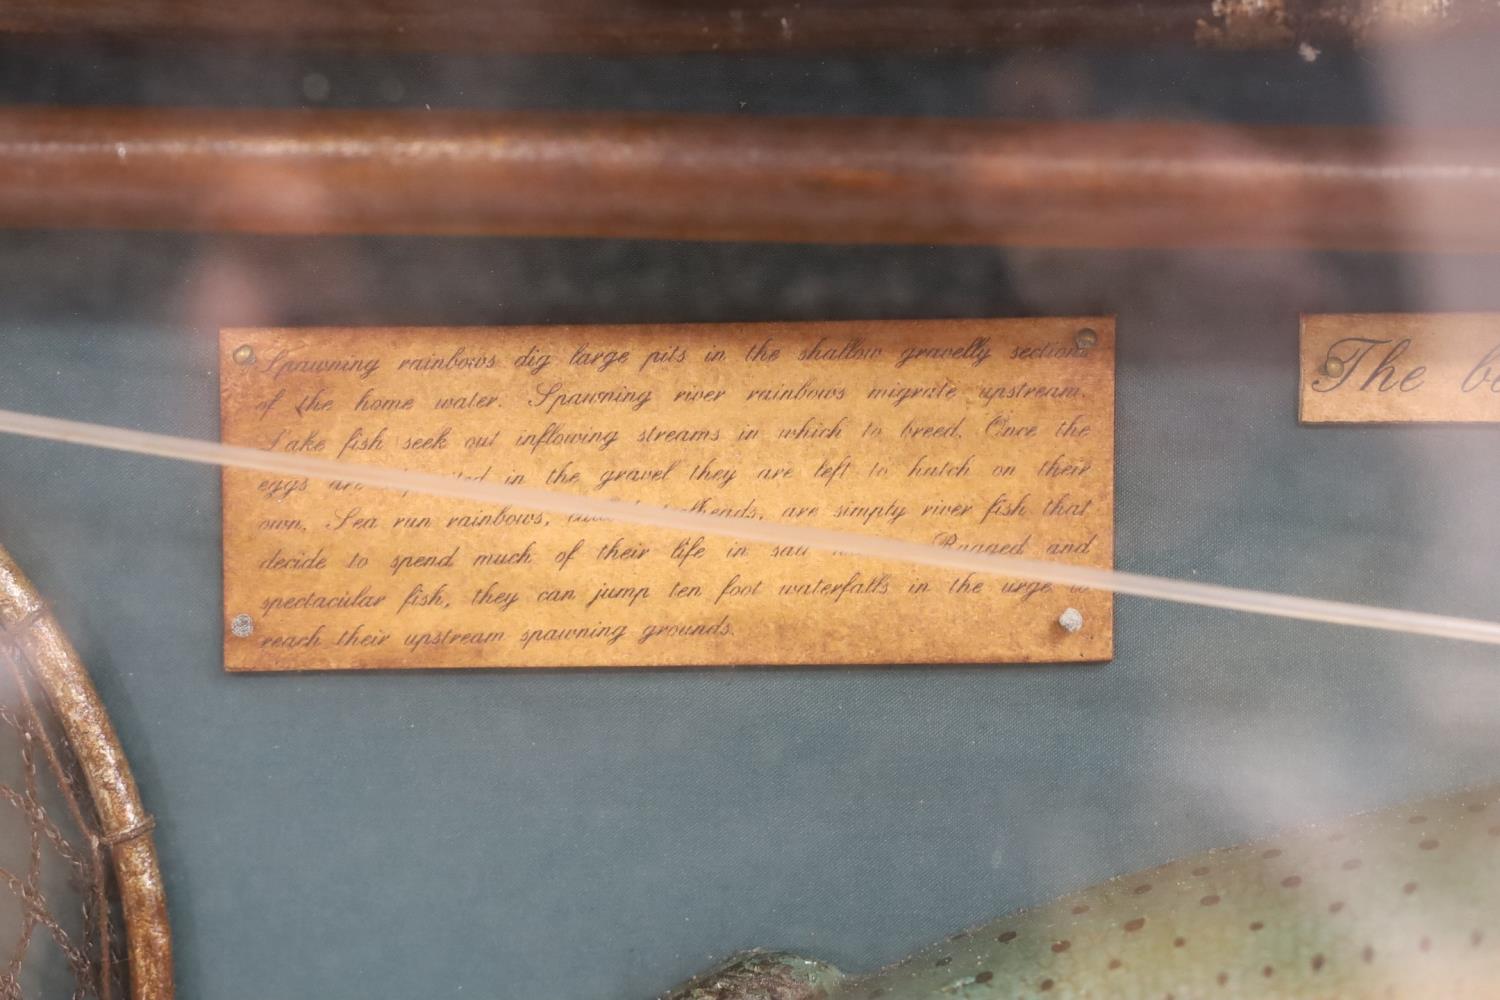 Spawning rainbows dig large pits in the shallow gravelly sections
of the home water. Spawning river rainbows migrate upstream.
Lake fish seek out inflowing streams in which to breed. Once the
eggs are in the gravel they are left to hatch on their
own. Sea run rainbows, are simply river fish that
decide to spend much of their life in salt Rugged and
spectacular fish, they can jump ten foot waterfalls in the urge to
reach their upstream spawning grounds.
The